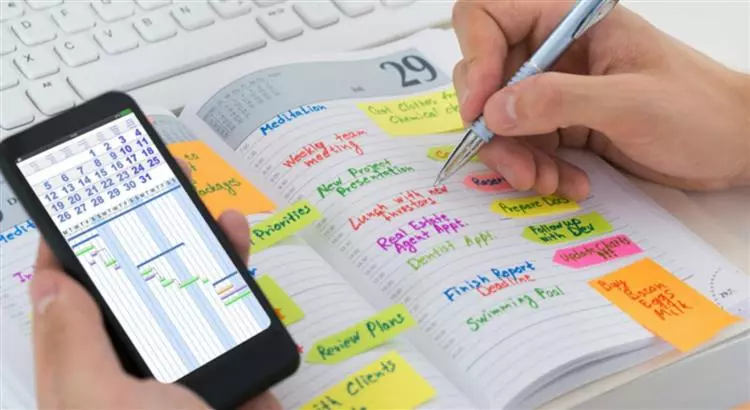 29
Meditation
Weekly team
meeting
New Project
Presentation
Lunch with new
investors
Real Estate
Agent Appt.
Dentist Appt.
Finish Report
Deadline
Swimming Pool
Clothes from
Chemical
Prepare Docs
Follow up
with Dev
Update Charts
Buy
Bacon
Eggs
Milk
Packages
Priorities
Review Plans
with Clients
1 2 3 4
5 6 7 8 9 10 11
12 13 14 15 16 17 18
19 20 21 22 23 24 25
26 27 28 29 30 31